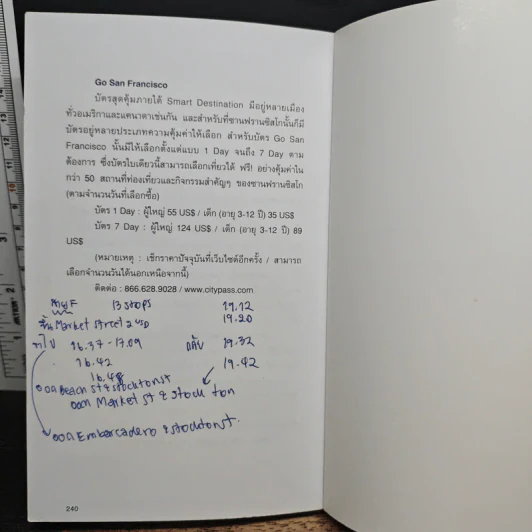 Go San Francisco
บัตรสุดคุ้มภายใต้ Smart Destination มีอยู่หลายเมือง
ทั่วอเมริกาและแคนาดาเช่นกัน และสำหรับที่ซานฟรานซิสโกนั้นก็มี
บัตรอยู่หลายประเภทความคุ้มค่าให้เลือก สำหรับบัตร Go San
Francisco นั้นมีให้เลือกตั้งแต่แบบ 1 Day จนถึง 7 Day ตาม
ต้องการ ซึ่งบัตรใบเดียวนี้สามารถเลือกเที่ยวได้ ฟรี! อย่างคุ้มค่าใน
กว่า 50 สถานที่ท่องเที่ยวและกิจกรรมสำคัญๆ ของซานฟรานซิสโก
(ตามจำนวนวันที่เลือกซื้อ)
บัตร 1 Day : ผู้ใหญ่ 55 US$ / เด็ก (อายุ 3-12 ปี) 35 US$
บัตร 7 Day : ผู้ใหญ่ 124 US$ / เด็ก (อายุ 3-12 ปี) 89
US$
(หมายเหตุ : เช็กราคาปัจจุบันที่เว็บไซต์อีกครั้ง / สามารถ
เลือกจำนวนวันได้นอกเหนือจากนี้)
ติดต่อ : 866.628.9028 / www.citypass.com
สาย F 13 stops 19.12
ขึ้น Market street 2 USD 19.20
ขาไป 16.37 - 17.09 กลับ 19.32
16.42 19.42
16.48
จอด Beach st & stockton st
จอด Market st & stockton
จอด Embarcadero & stockton st.
240